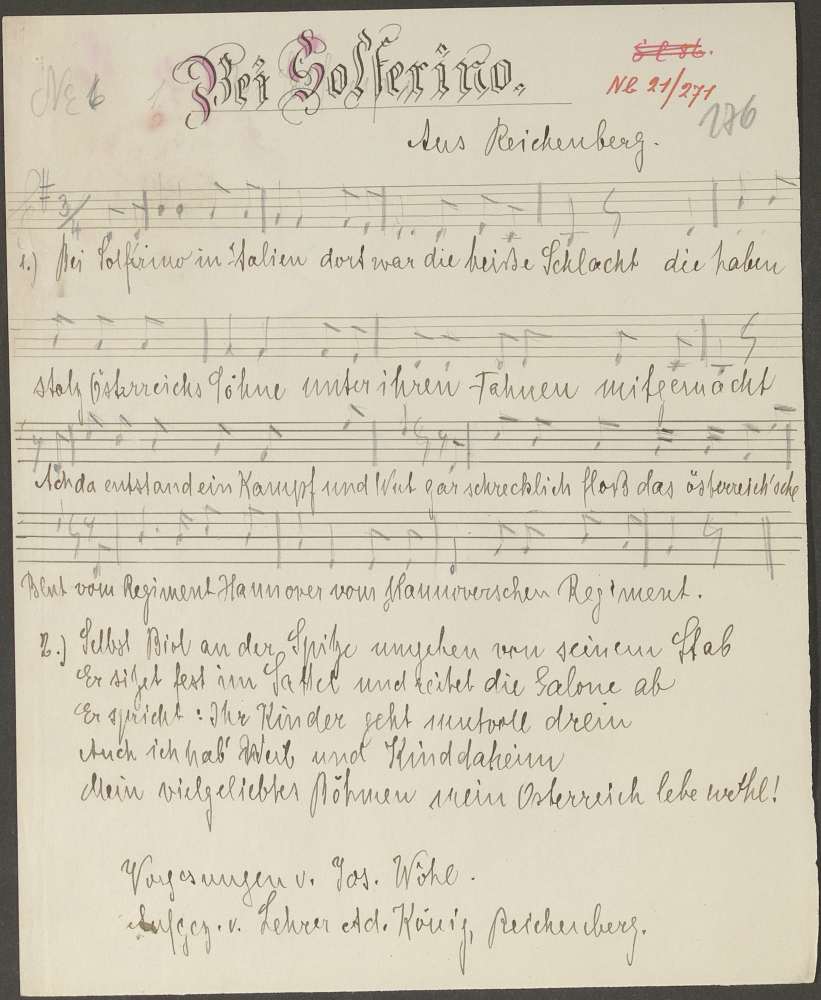 Bei Solferino.
NE 6
NL 21/271
186
Aus Reichenberg.
3/4
1.) Bei Solferino in Italien dort war die heiße Schlacht die haben
stolz Österreichs Söhne unter ihren Fahnen mitgemacht
Ach da entstand ein Kampf und Wut gar schrecklich floß das österreich'sche
Blut vom Regiment Hannover vom Hannoverschen Regiment.
2.) Selbst Birl an der Spitze umgeben von seinem Stab
Er sitzet fest im Sattel und reitet die Salone ab
Er spricht: Ihr Kinder geht mutvoll drein
Auch ich hab' Weib und Kind daheim
Mein vielgeliebtes Böhmen mein Österreich lebe wohl!
Vorgesungen v. Jos. Wöhl.
Aufgez. v. Lehrer Ad. König, Reichenberg.